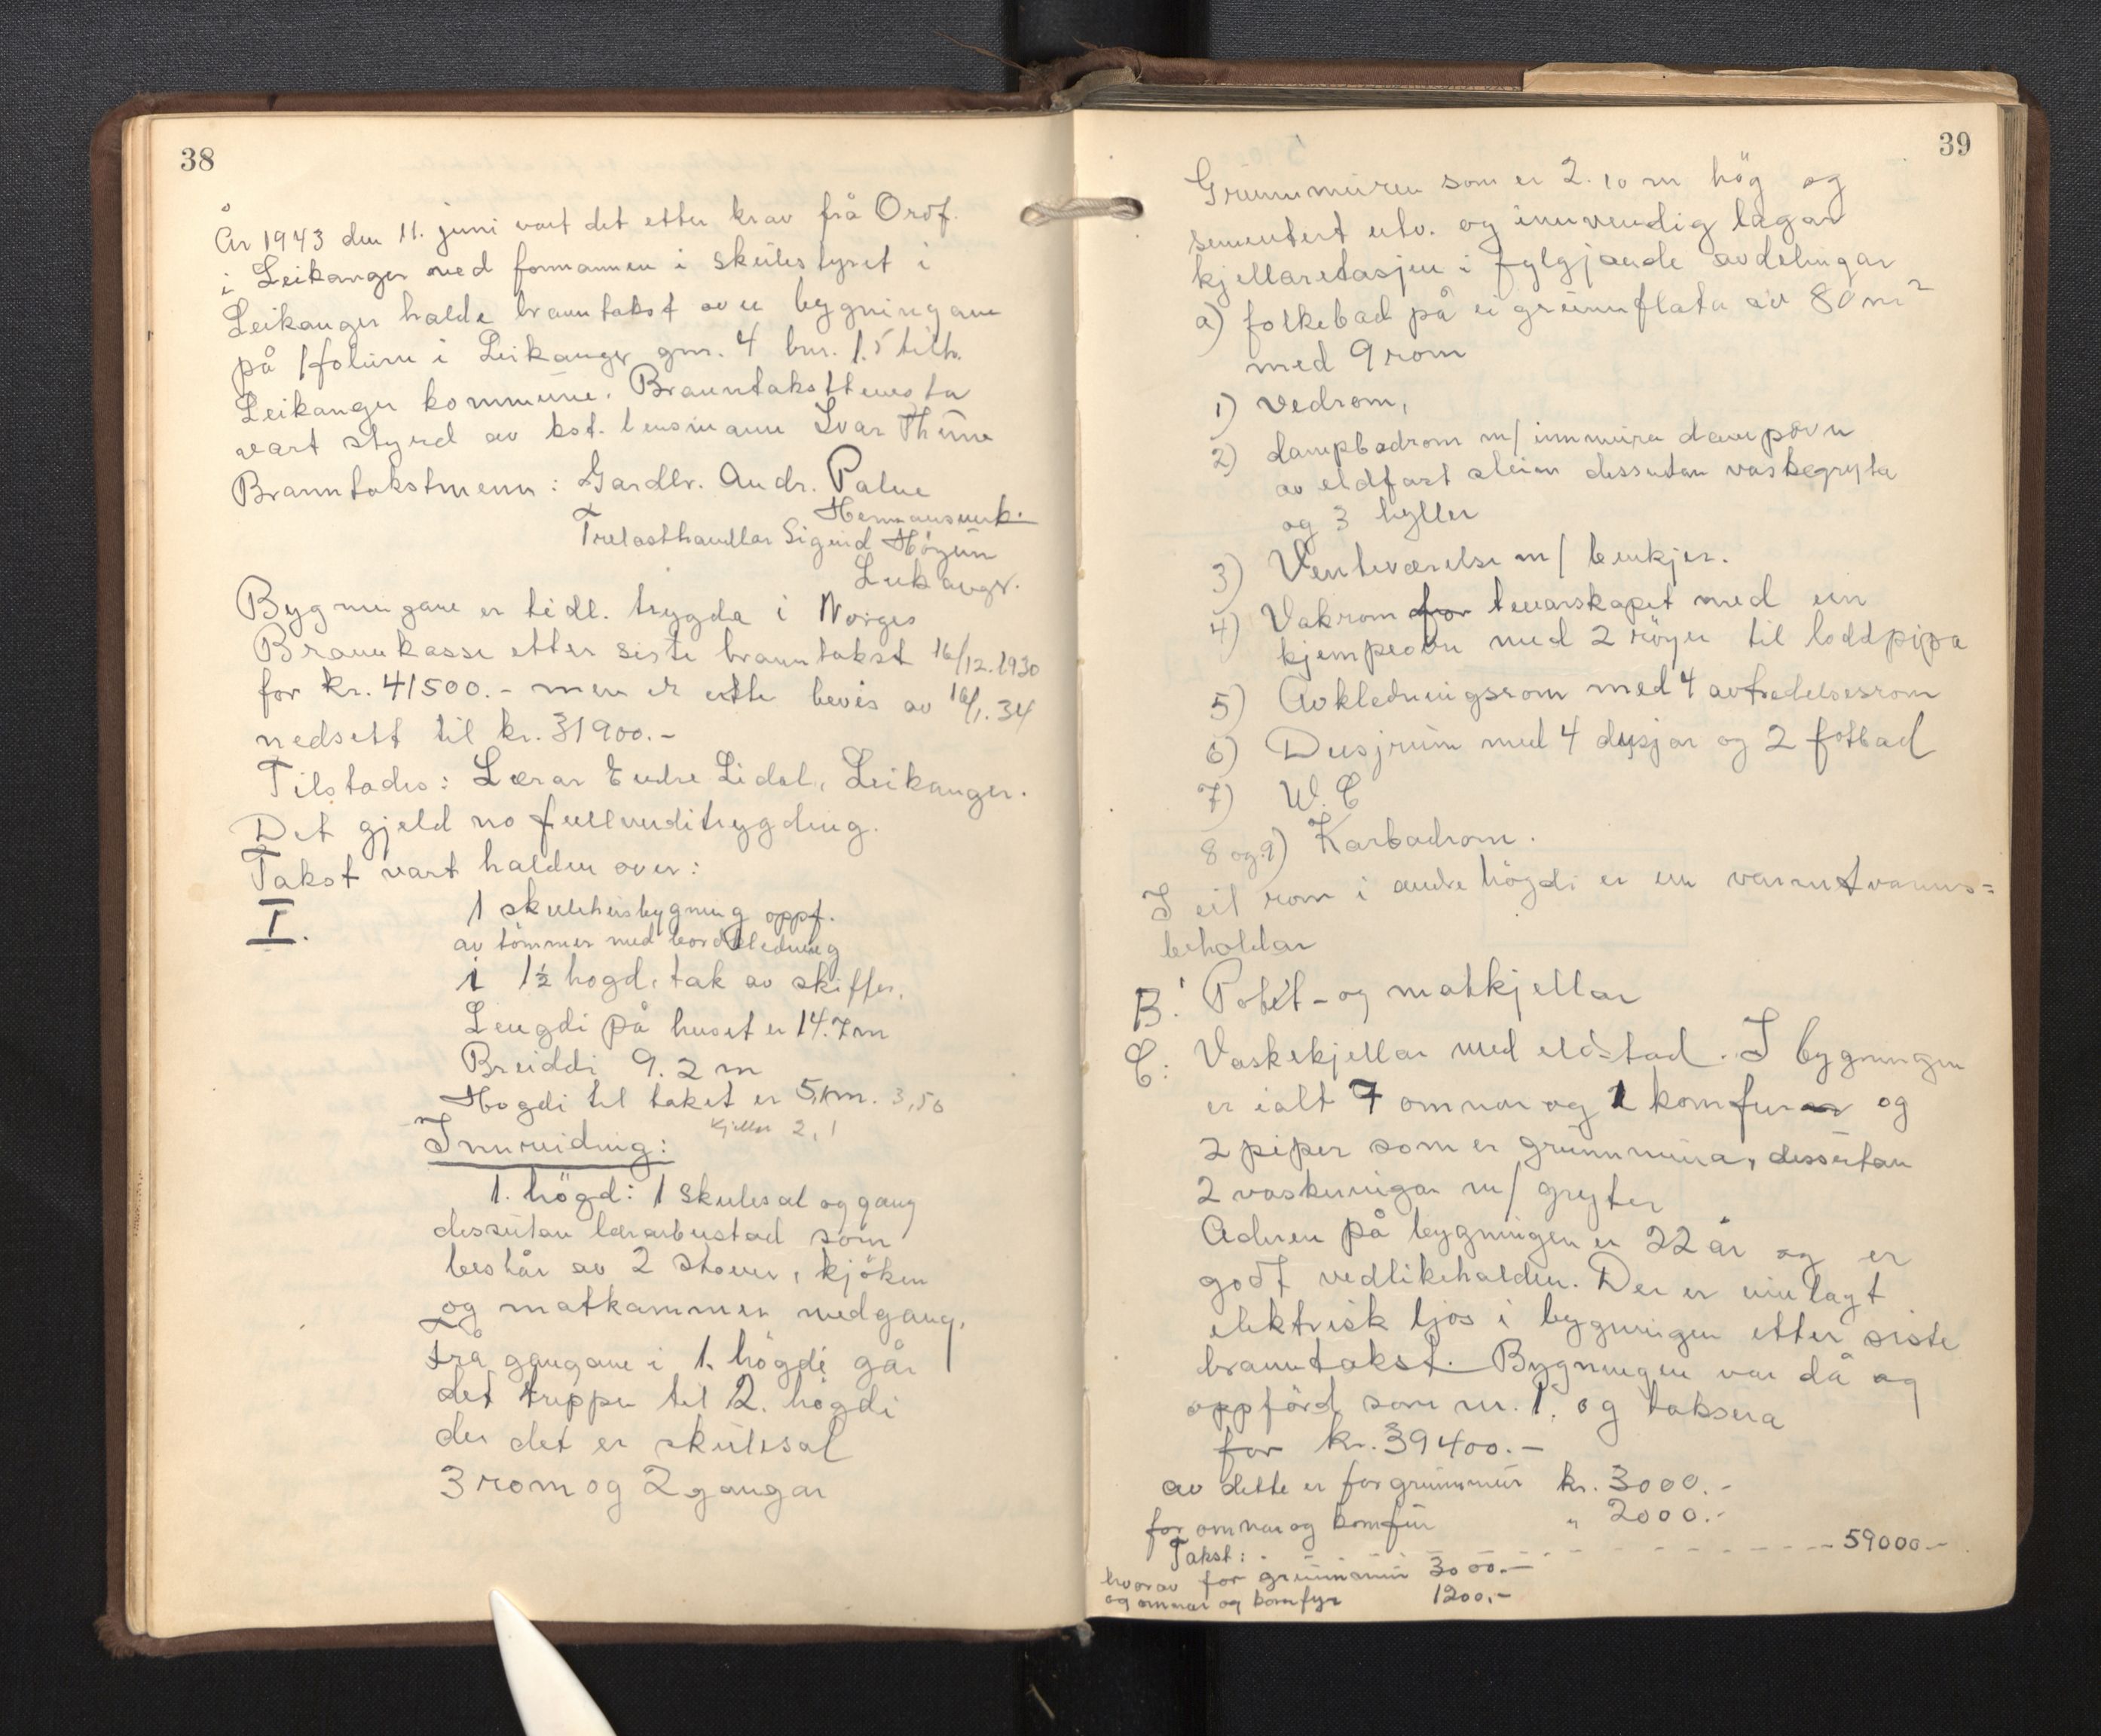 38
År 1943 den 11. juni vart det etter krav frå Ordf.
i Leikanger med formannen i skulestyret i
Leikanger halde branntakst over bygningane
på i Leikanger gnr. 4 bnr. 1.5 tilh.
Leikanger kommune. Branntaksttenesta
vart styrd av kst. lensmann Ivar Thune
Branntakstmenn: Gardbr. Andr. Palne
Hermansverk.
Trelasthandlar Sigurd Högum
Leikanger.
Bygningane er tidl. trygda i Norges
Brannkasse etter siste branntakst 16/12.1930
for kr. 41500.- men er etter bevis av 16/1.34
nedsett til kr. 31900.-
Tilstades: Lærar Endre Lidal, Leikanger.
Det gjeld no fullverditrygding.
Takst vart halden over:
I. 1 skulehusbygning oppf.
av tömmer med bordkledning
i 1½ hogd, tak av skiffer.
Lengdi på huset er 14.7m
Breiddi 9.2 m
Hogdi til taket er 5,1m. 3,50
Kjellar 2,1
Innreiding:
1. högd: 1 skulesal og gang
dessutan lærarbustad som
består av 2 stover, kjöken
og matkammer med gang,
frå gangane i 1. högdi går
det trippe til 2. högdi
der det er skulesal
3 rom og 2 gangar
39
Grunnmuren som er 2.10 m hög og
sementert utv. og innvendig lagar
kjellaretasjen i fylgjande avdelingar
a) folkebad på ei grunnflata av 80 m²
med 9 rom
1) vedrom,
2) dampbadrom m/ innmura dampovn
av eldfast stein dessutan vaskegryta
og 3 hyller
3) Venteværelse m/ benkjer.
4) Vakrom for tenarskapet med ein
kjempeovn med 2 röyr til loddpipa
5) Avkledningsrom med 4 avtredelsesrom
6) Dusjrum med 4 dusjar og 2 fotbad
7) W. C
8 og 9) Karbadrom.
I eit rom i andre högdi er en varmtvanns=
beholdar
B: Potet- og matkjellar
C: Vaskekjellar med eldstad. I bygningen
er ialt 7 omnar og 1 komfur og
2 piper som er grunnmura, dessutan
2 vaskeningar m/ gryter
Aderen på bygningen er 22 år og er
godt vedlikehalden. Der er innlagt
elektrisk ljos i bygningen etter siste
branntakst. Bygningen var då og
oppförd som nr. 1. og taksera
for kr. 39400.-
av dette er for grunnmur kr. 3000.-
for omnar og komfur " 2000.-
Takst: - - - - - - - - - - 59000.-
hvorav for grunnmur 3000.-
og omnar og komfyr 1200.-